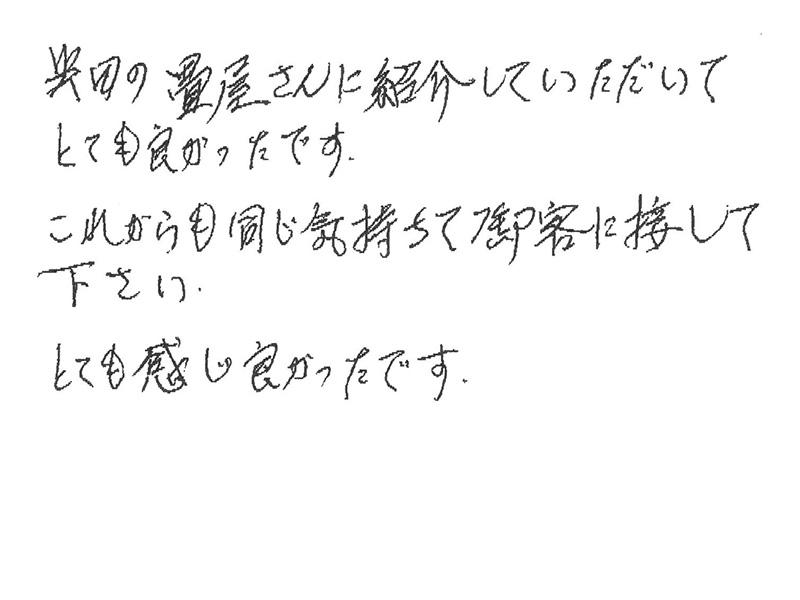 の畳屋さんに紹介していただいて
とても良かったです.
これからも同じ気持ちて御客に接して
下さい.
とても感じ良かったです.